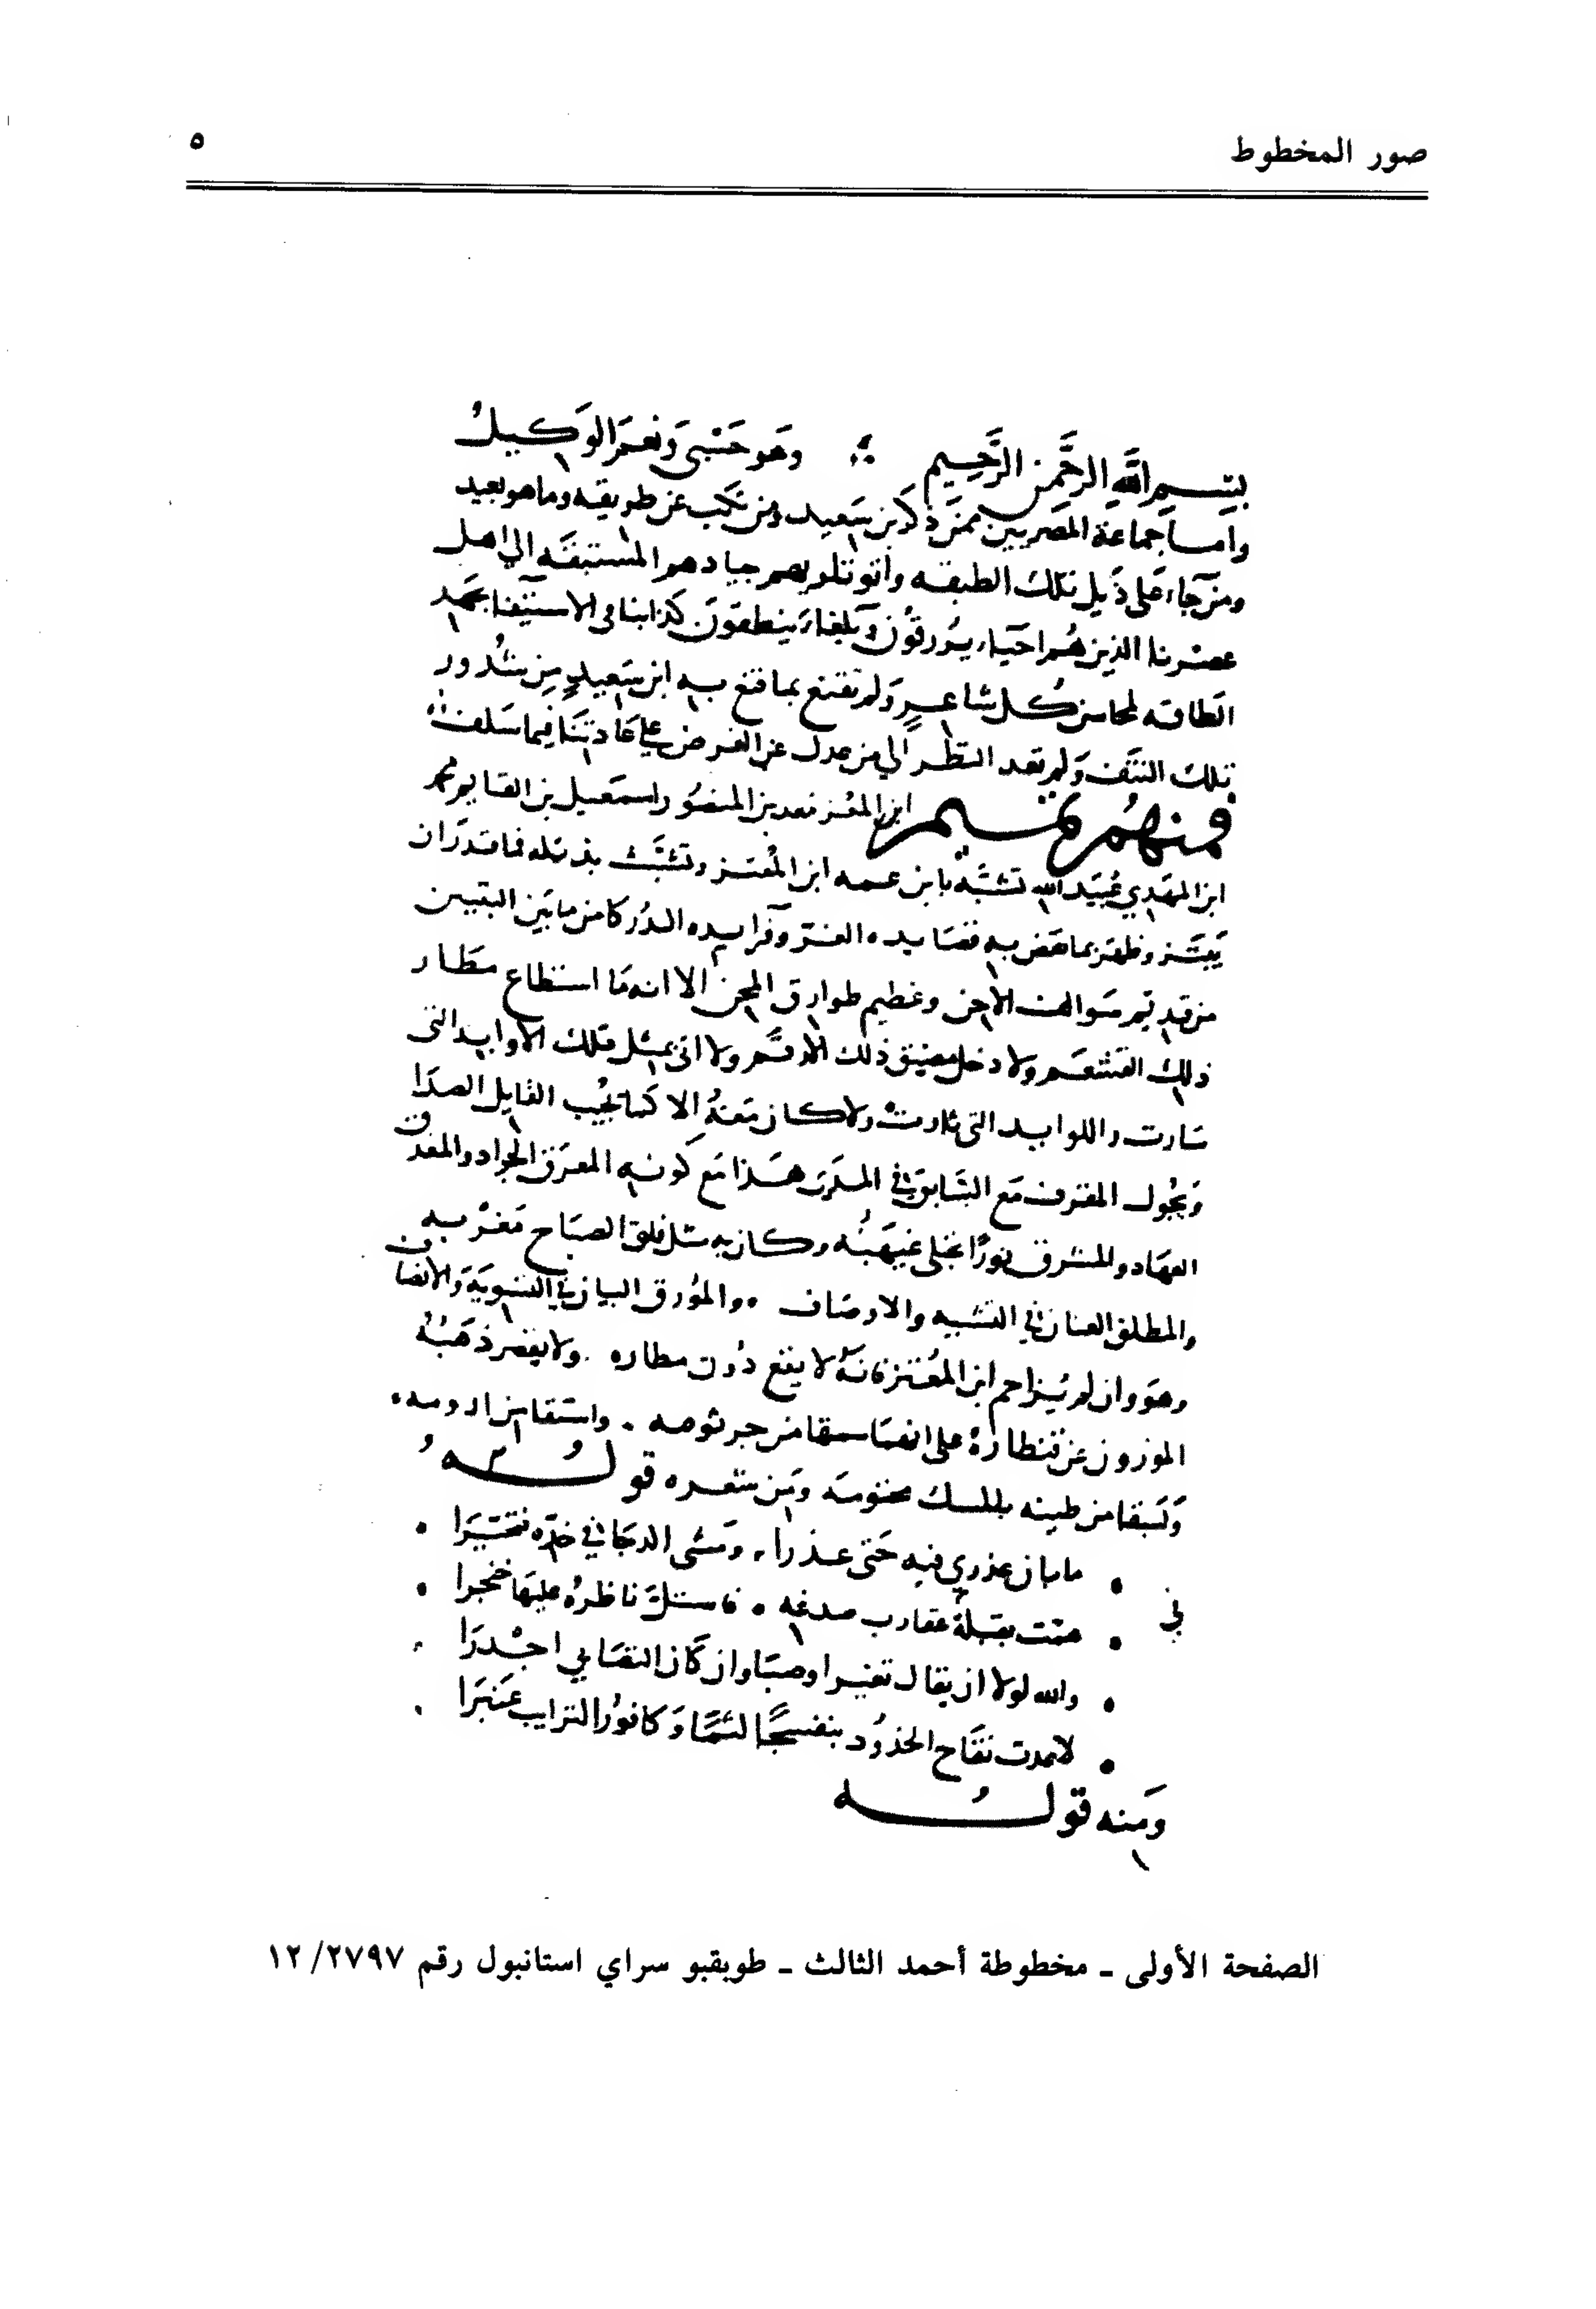 صور المخطوط
٥
بِسْمِ اللَّهِ الرَّحْمَنِ الرَّحِيمِ وَهُو حَسْبِي وَنِعْمَ الوَكيلُ
وأما جماعة المصريين ممن ذكر ابن سعيد ومن نكب عن طريقه وما هو بعيد
ومن جاء على ذيل تلك الطبقه وأتوا تلوهم جيادهم المستبقه الى اهل
عصرنا الذين هم احياء يرزقون وبلغاء ينطقون كذابنا في الاستيفا بجهد
الطاقه لمحاسن كل شاعرٍ ولم نقنع بما قنع به ابن سعيدٍ من شذور
تلك النتف ولم نعد النظر الى من عدل عن الغرض على عادتنا فيما سلف
فمنهم تميم ابن المعز معد بن المنصور اسمعيل بن القايم محمد
ابن المهدي عُبَيد الله تشبَّه بابن عمه ابن المُعتز وتشبَّث بذيله فما قدر ان
يَبتَز وظفر بما نهض به قصايده الغر وفرايده الدُر كامن ما بين البيتين
من قديم سوالف الاحن وعظيم طوارق المحن الا انه ما استطاع مطار
ذلك القشعم ولا دخل مضيق ذلك الأرقم ولا اتى بمثل تلك الأوابد التي
سارت واللوابد التي ثارت ولا كان معه إلا كما يجيب القايل الصدا
ويجول المقرف مع السابق في المدى هذا مع كونه المعرق الجواد والمغدق
العهاد والمشرق نورًا تجلى غيهبُه وكان به مثل فلق الصباح مغربه
والمطلق العنان في التشبيه والاوصاف والمُورق البيان في التسوية والانصاف
وهو وان لم يُزاحم ابن المُعتز فانه لا يقع دُون مطاره . ولا يقصر ذهبُهُ
الموزون عن قنطاره على انهما سمقا من جرثومه . واستقا من ارومه
وَسُبقا من طينه بالمسك مختومه ومن شعره قولُهُ
ما بان عذري فيه حَتى عذرا . ومَشى الدجا في خدّه فتحَيَّرا
همّت بقبلة عقارب صدغه . فاستلَّ ناظرُه عليها خنجرا
والله لولا ان يقال تغيرا وصبَا وان كَان التصَابي اجْدَرَا
لاعدت تفاح الخدُود بنفسجًا لثمًا وَكافورُ الترايب عَنبَرَا
ومنه قولُه
الصفحة الأولى - مخطوطة أحمد الثالث - طوبقبو سراي استانبول رقم ١٢/٢٧٩٧